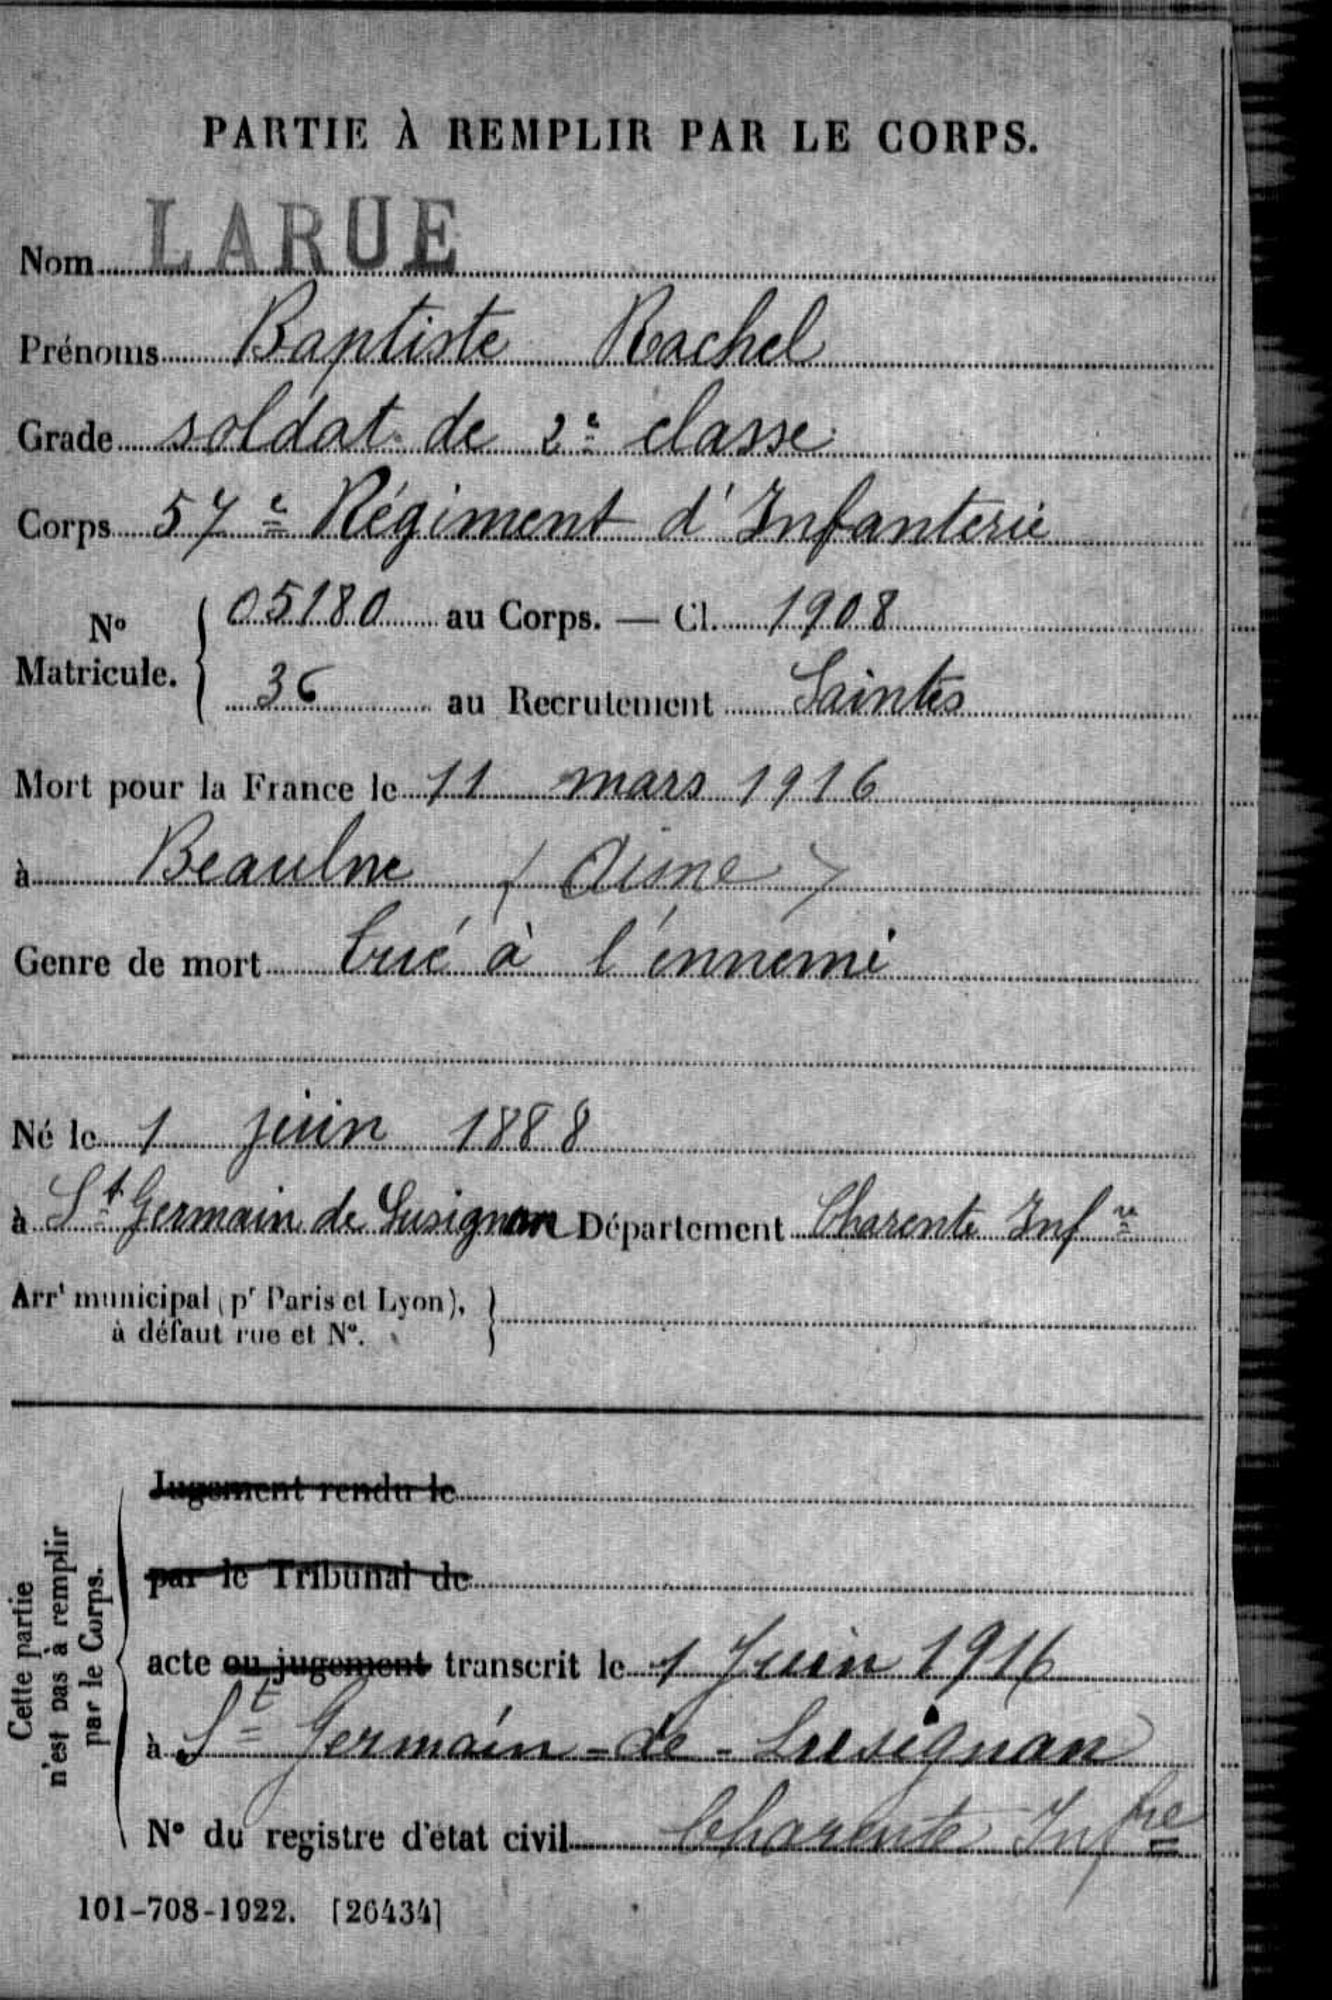 PARTIE À REMPLIR PAR LE CORPS.
Nom LARUE
Prénoms Baptiste Rachel
Grade soldat de 2e classe
Corps 57e Régiment d'Infanterie
No Matricule. { 05180 au Corps. — Cl. 1908
36 au Recrutement Saintes
Mort pour la France le 11 mars 1916
à Beaulne (Aisne)
Genre de mort tué à l'ennemi
Né le 1 juin 1888
à St Germain de Lusignan Département Charente Infre
Arrt municipal (pr Paris et Lyon), à défaut rue et No. }
Cette partie n'est pas à remplir par le Corps.
Jugement rendu le
par le Tribunal de
acte ou jugement transcrit le 1 Juin 1916
à St Germain-de-Lusignan
No du registre d'état civil Charente Infre
101-708-1922. [26434]